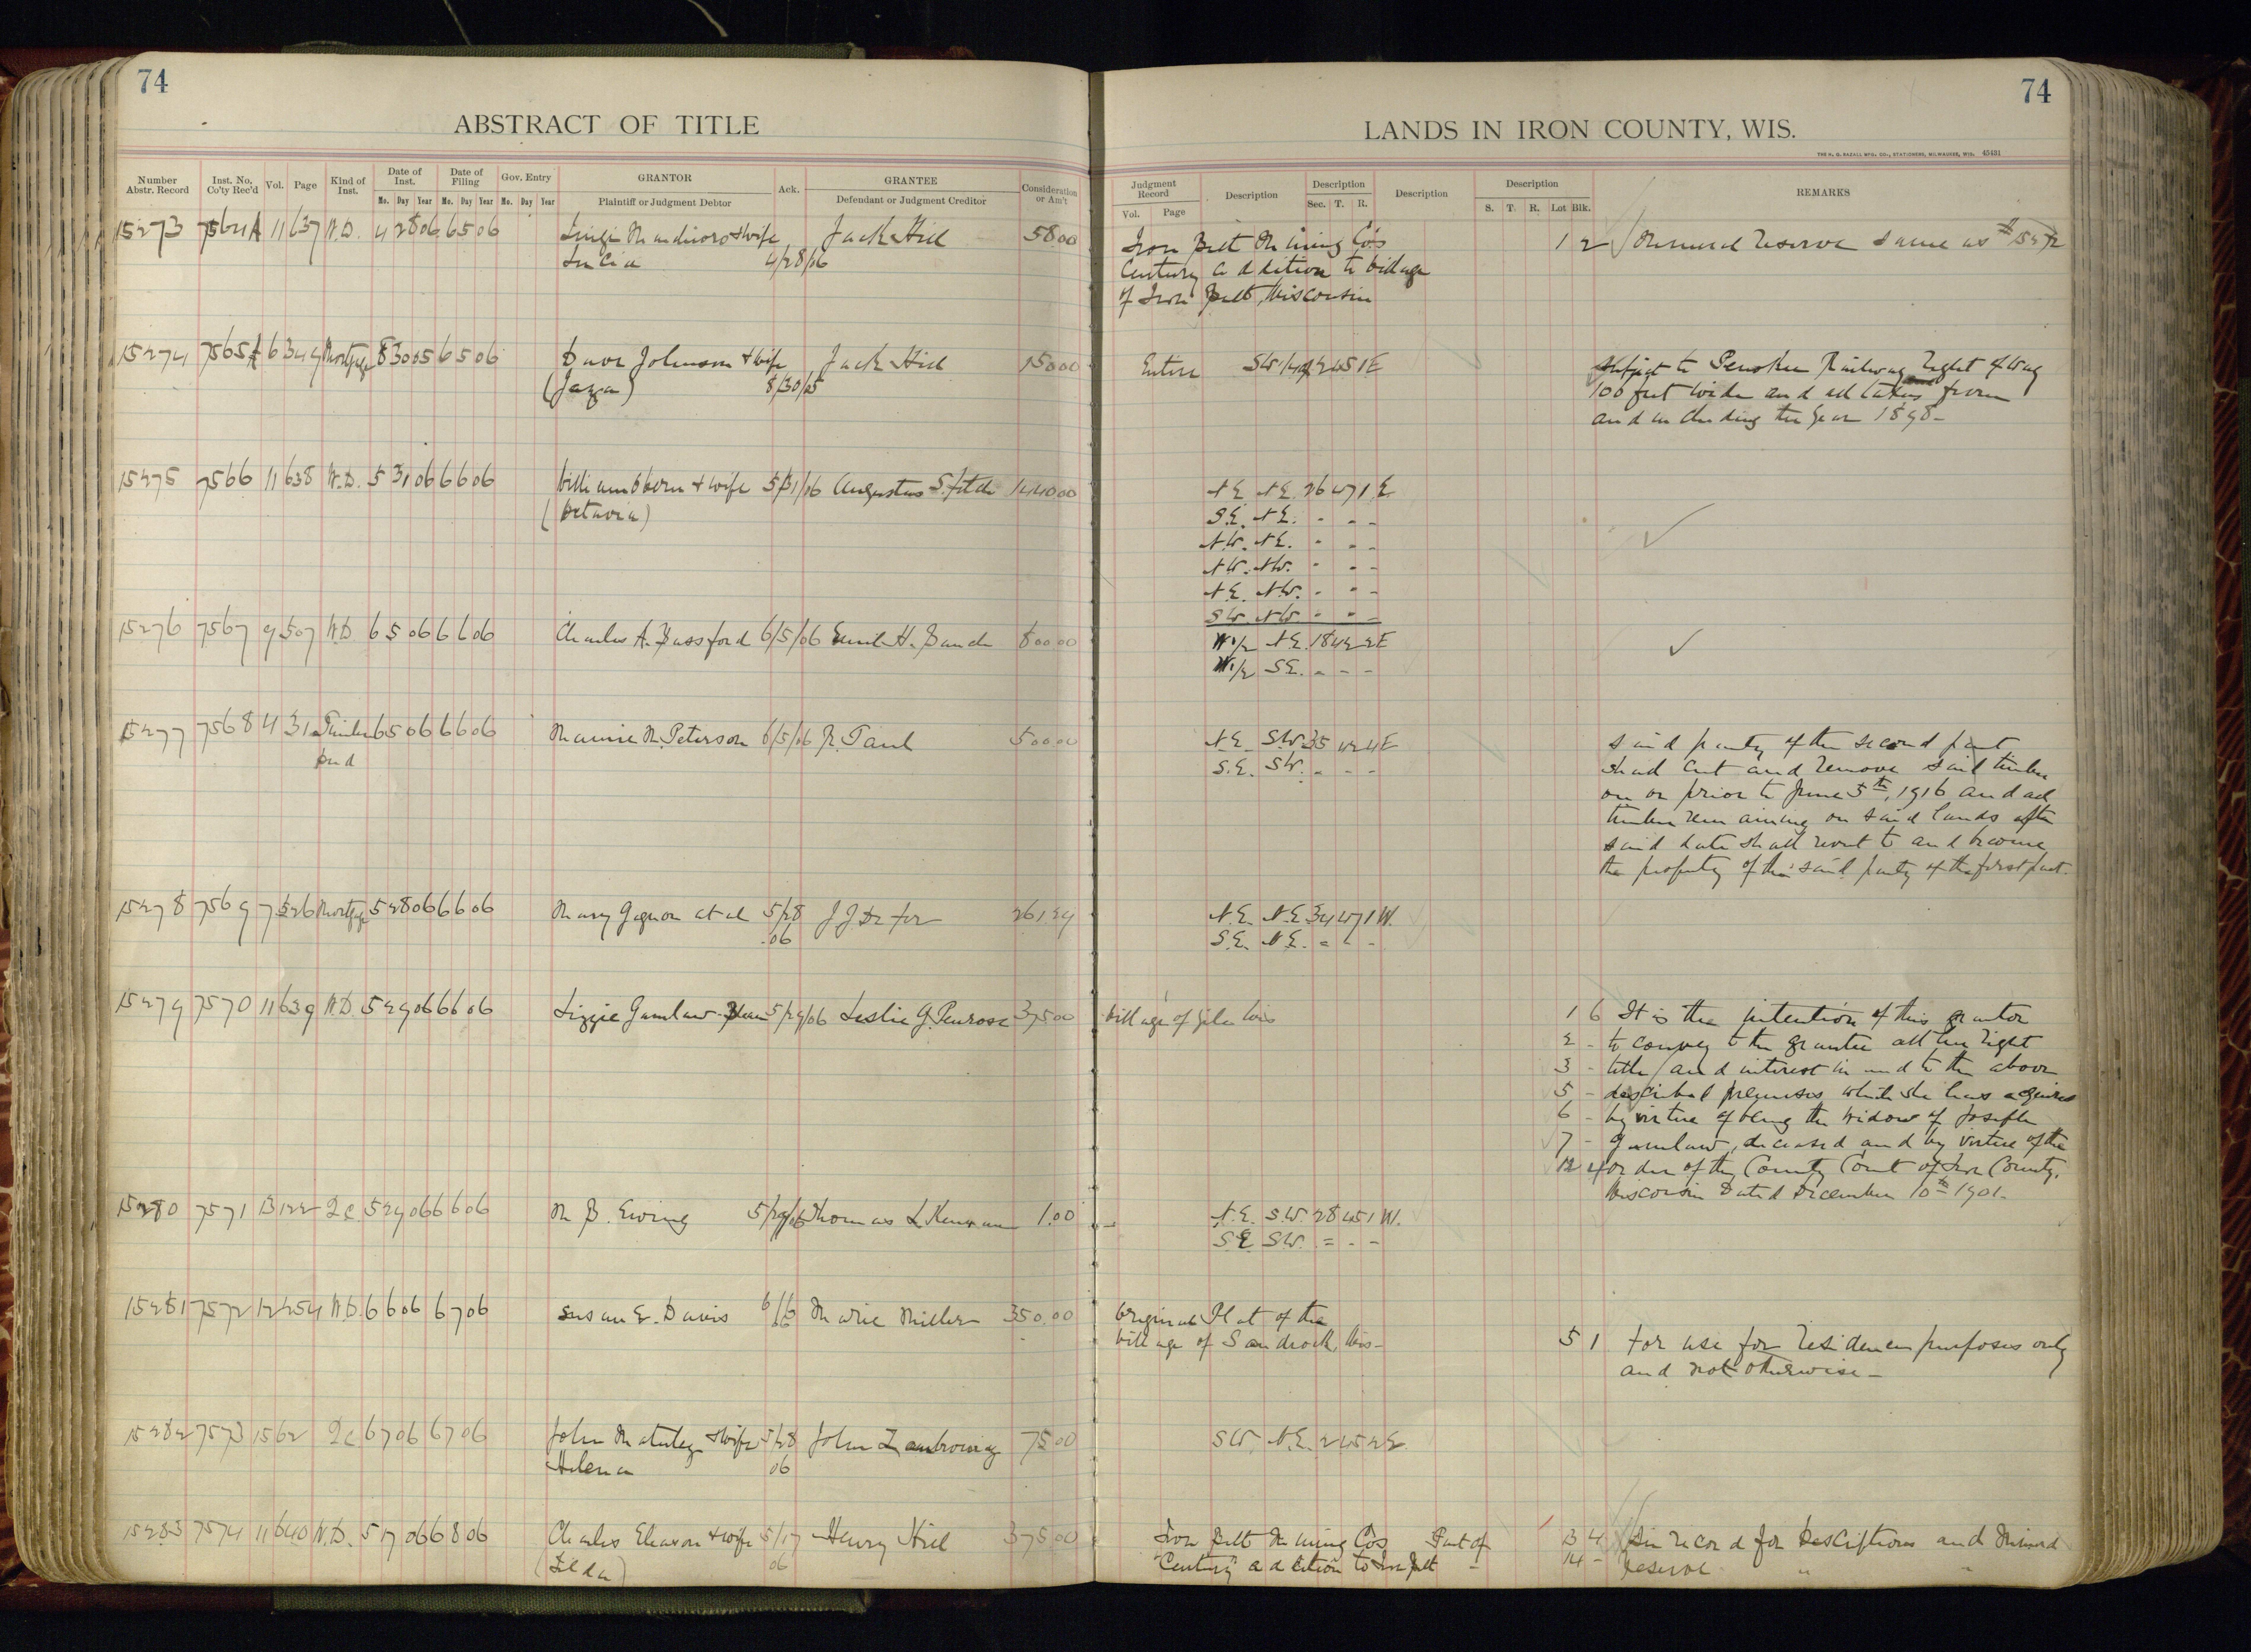 74
ABSTRACT OF TITLE
Number Abstr. Record
Inst. No. Co'ty Rec'd
Vol.
Page
Kind of Inst.
Date of Inst.
Mo. Day Year
Date of Filing
Mo. Day Year
Gov. Entry
Mo. Day Year
GRANTOR
Plaintiff or Judgment Debtor
Ack.
GRANTEE
Defendant or Judgment Creditor
Consideration or Am't
15273 7564A 11 637 W.D. 4 28 06 6 5 06 & wife Jack Hill 58.00
Lucia 4/28/06
15274 7565A 6 349 Mortgage 8 30 05 6 5 06 Johnson & wife Jack Hill
8/30/05
15275 7566 11 638 W.D. 5 31 06 6 6 06 William & wife 5/31/06 Augustus S. Fitch 1440.00
(Octavia)
15276 7567 9 507 W.D. 6 5 06 6 6 06 Charles A. Bassford 6/5/06 H. 800.00
15277 7568 4 31 Timber 6 5 06 6 6 06 M. Peterson 6/5/06 500.00
15278 7569 7 526 Mortgage 5 28 06 6 6 06 Mary Gagnon et al 5/28 J J 261.29
.06
15279 7570 11 639 W.D. 5 29 06 6 6 06 Lizzie 5/29/06 Leslie G. Penrose 375.00
15280 7571 13 122 Q C 5 29 06 6 6 06 M B. Ewing 5/29/06 Thomas L 1.00
15281 7572 12 254 W.D. 6 6 06 6 7 06 Susan E. Davis 6/6 Marie Miller 350.00
06
15282 7573 15 62 Q C 6 7 06 6 7 06 John & wife 5/28 John 75.00
Helena 06
15283 7574 11 640 W.D. 5 17 06 6 8 06 Charles Eleason & wife 5/17 Henry Hill 375.00
06
74
LANDS IN IRON COUNTY, WIS.
THE H. G. RAZALL MFG. CO., STATIONERS, MILWAUKEE, WIS. 45431
Judgment Record
Vol. Page
Description
Description
Sec. T. R.
Description
Description
S. T. R. Lot Blk.
REMARKS
Iron Belt Mining Co's 1 2 Mineral reserve same as #15272
Century addition to village
of Iron Belt, Wisconsin
Entire SW 1/4 45 1 E subject to Penokee Railway right of way
100 feet wide and all taxes from
and including the year 1898-
N.E. N.E. 26 47 1 E.
S.E. N.E. - - -
N.W. N.E. - - -
N.W. N.W. - - -
N.E. N.W. - - -
S.W. N.W. - - -
W 1/2 N.E. 18 42 2 E
W 1/2 S.E. - - -
N.E. S.W. 35 42 4 E said party of the second part
S.E. S.W. - - - shall cut and remove said timber
on or prior to June 5th, 1916 and all
timber remaining on said lands after
said date shall revert to and become
the property of the said party of the first part.
N.E. N.E. 34 47 1 W.
S.E. N.E. - - -
Village of Gile Wis 1 6 It is the intention of this grantor
2 - to convey to the grantee all her right
3 - title and interest in and to the above
5 - described premises which she has acquired
6 - by virtue of being the widow of Joseph
7 - deceased and by virtue of the
12 4 order of the County Court of Iron County,
Wisconsin Dated December 10th 1901.
N.E. S.W. 28 45 1 W.
S.E. S.W. = - -
Original Plat of the
Village of Sandrock, Wis- 5 1 For use for residence purposes only
and not otherwise-
S.W. N.E. 2 45 2 E.
Iron Belt Mining Co's Part of 13 4 See record for descriptions and Mineral
"Century" addition to Iron Belt - 14 - reserve " "